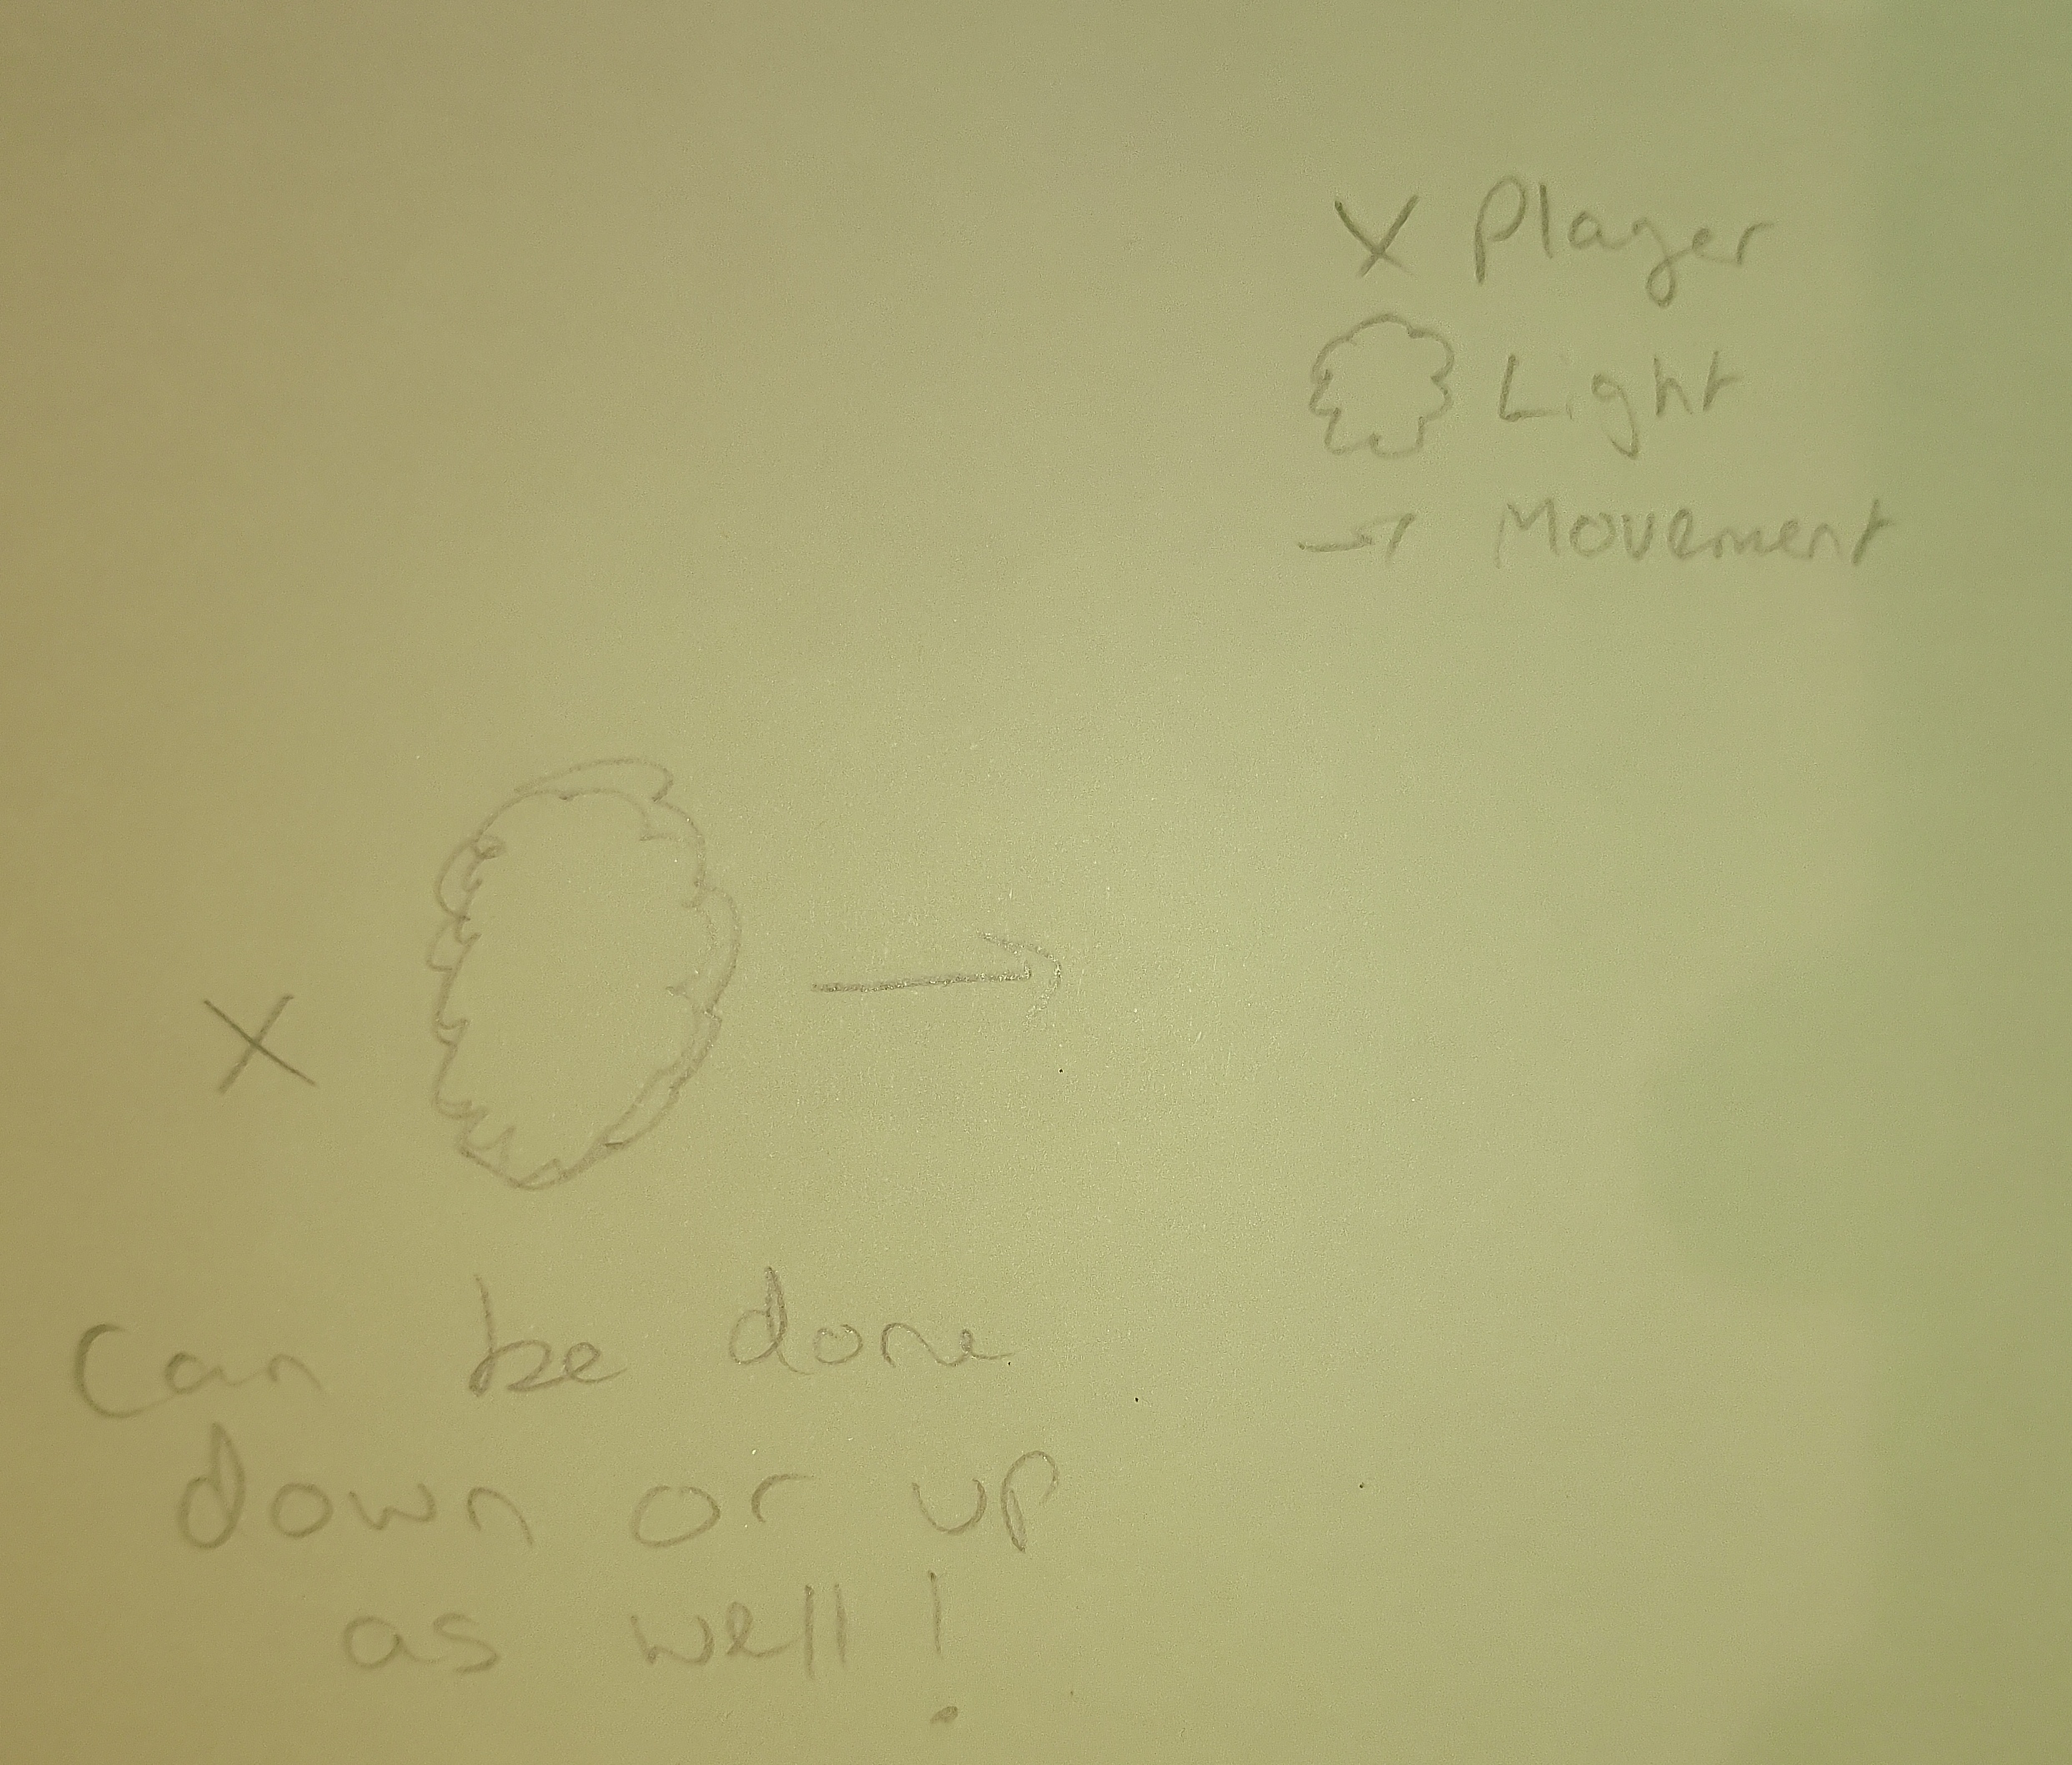 X Player
Light
→ Movement
X →
Can be done
down or up
as well!